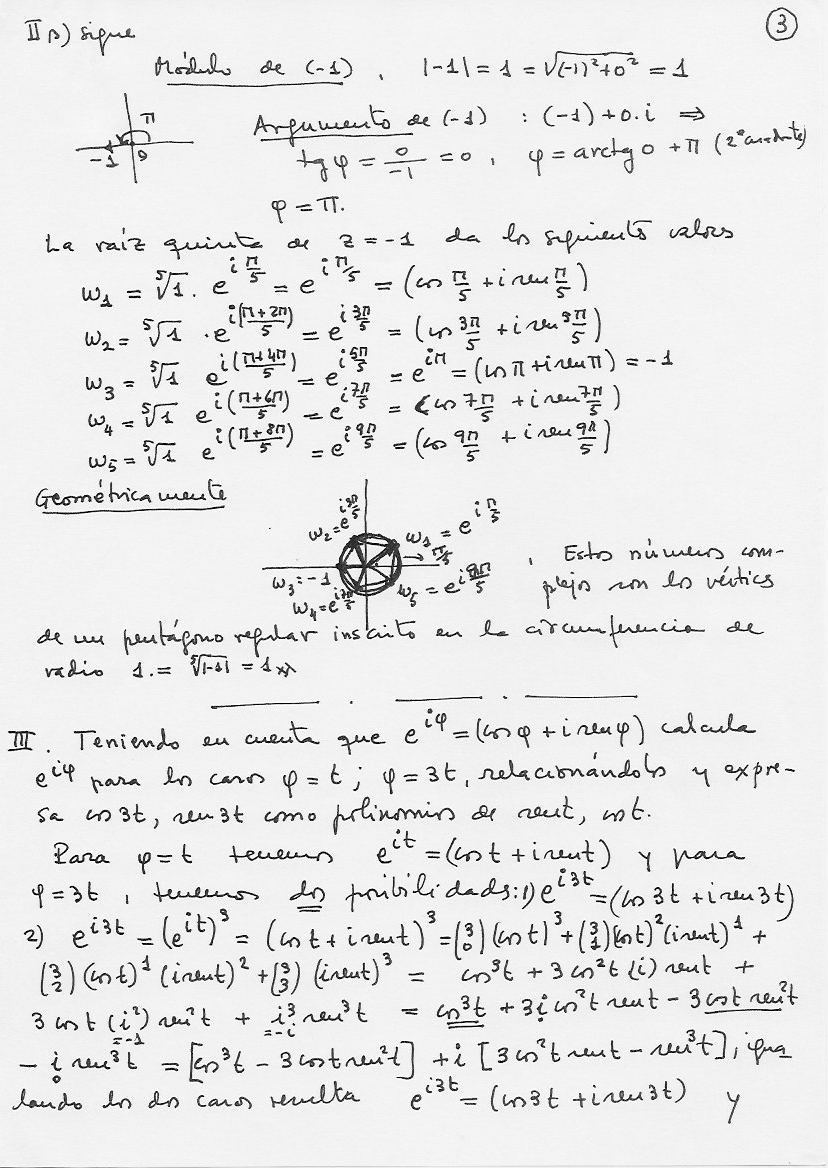 3
II β) sigue
Módulo de (-1) , |-1| = 1 = √((-1)²+0²) = 1
π
-1 0
Argumento de (-1) : (-1)+0.i ⇒
tg φ = 0/-1 = 0 , φ = arctg 0 + π (2º cuadrante)
φ = π.
La raíz quinta de z = -1 da los siguientes valores
w₁ = ⁵√1 . e^(i π/5) = e^(i π/5) = (cos π/5 + i sen π/5)
w₂ = ⁵√1 . e^(i(π+2π)/5) = e^(i 3π/5) = (cos 3π/5 + i sen 3π/5)
w₃ = ⁵√1 e^(i(π+4π)/5) = e^(i 5π/5) = e^(iπ) = (cos π + i sen π) = -1
w₄ = ⁵√1 e^(i(π+6π)/5) = e^(i 7π/5) = (cos 7π/5 + i sen 7π/5)
w₅ = ⁵√1 e^(i(π+8π)/5) = e^(i 9π/5) = (cos 9π/5 + i sen 9π/5)
Geométricamente
w₂ = e^(i 3π/5) w₁ = e^(i π/5)
→ π/5
w₃ = -1 w₅ = e^(i 9π/5)
w₄ = e^(i 7π/5)
, Estos números com-
plejos son los vértices
de un pentágono regular inscrito en la circunferencia de
radio 1. = ⁵√|-1| = 1
III . Teniendo en cuenta que e^(iφ) = (cos φ + i sen φ) calcula
e^(iφ) para los casos φ = t ; φ = 3t, relacionándolos y expre-
sa cos 3t, sen 3t como polinomios de sen t, cos t.
Para φ = t tenemos e^(it) = (cos t + i sen t) y para
φ = 3t , tenemos dos posibilidades: 1) e^(i3t) = (cos 3t + i sen 3t)
2) e^(i3t) = (e^(it))³ = (cos t + i sen t)³ = (3 0)(cos t)³ + (3 1)(cos t)² (i sen t)¹ +
(3 2)(cos t)¹ (i sen t)² + (3 3)(i sen t)³ = cos³t + 3 cos²t (i) sen t +
3 cos t (i²) sen²t + i³ sen³t = cos³t + 3i cos²t sen t - 3 cos t sen²t
=-1 =-i
- i sen³t = [cos³t - 3 cos t sen²t] + i [3 cos²t sen t - sen³t], igua
lando los dos casos resulta e^(i3t) = (cos 3t + i sen 3t) y